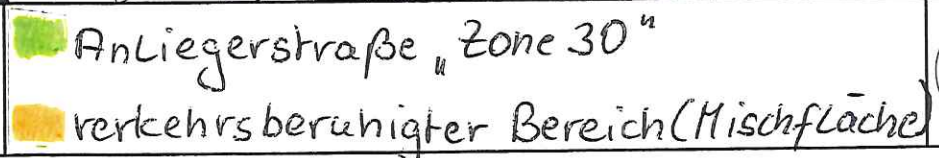 Anliegerstraße „Zone 30“
verkehrsberuhigter Bereich (Mischfläche)